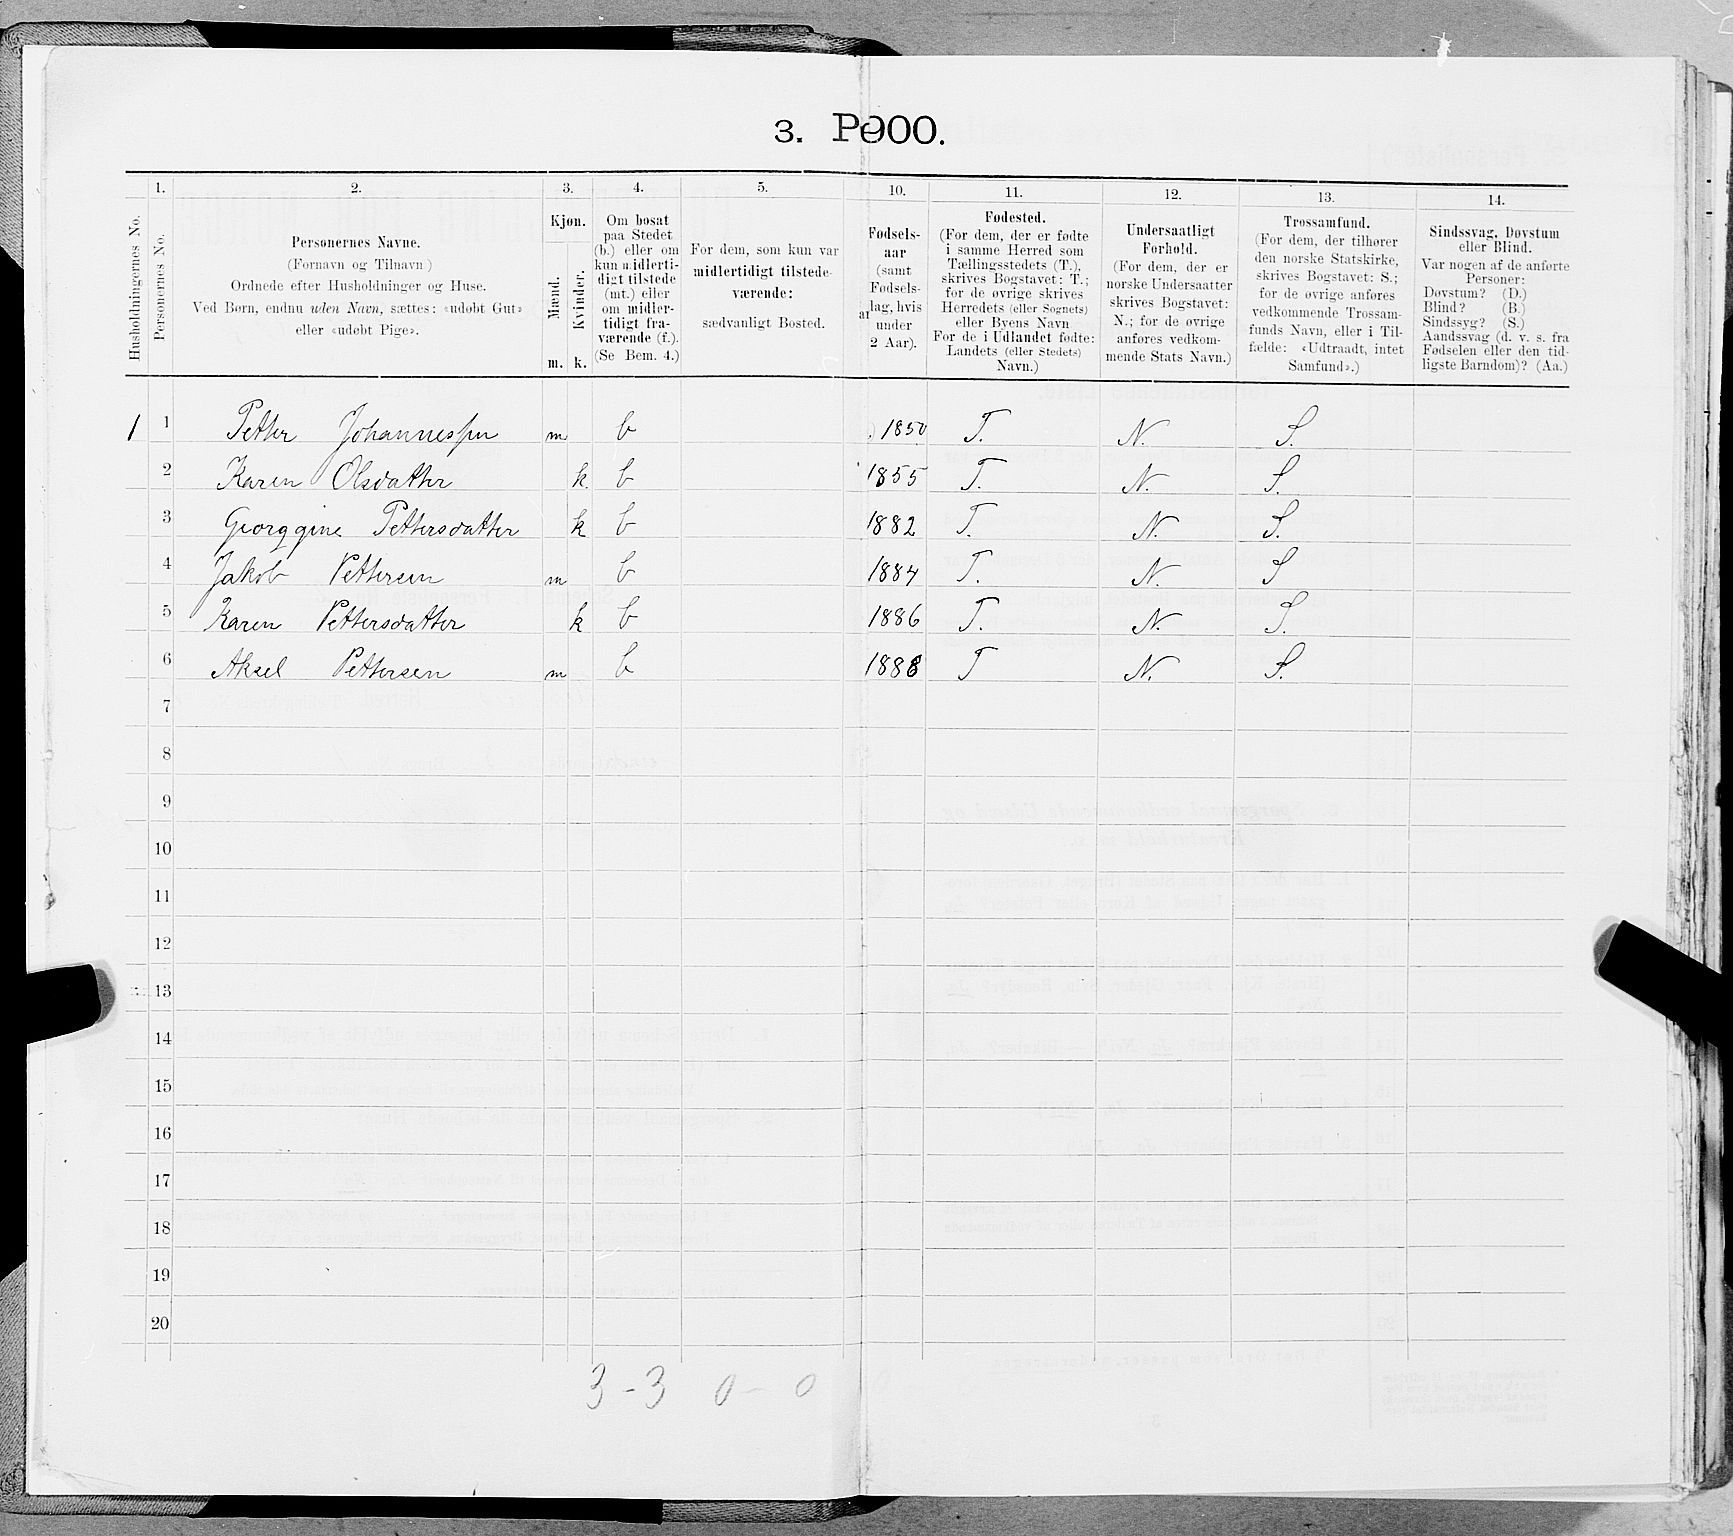 3. Pe900.
1. 2. 3. 4. 5. 10. 11. 12. 13. 14.
Husholdningernes No.
Personernes No.
Personernes Navne.
(Fornavn og Tilnavn)
Ordnede efter Husholdninger og Huse.
Ved Børn, endnu uden Navn, sættes: «udøbt Gut»
eller «udøbt Pige».
Kjøn.
Mænd.
Kvinder.
m. k.
Om bosat
paa Stedet
(b.) eller om
kun midlerti-
digt tilstede
(mt.) eller
om midler-
tidigt fra-
værende (f.).
(Se Bem. 4.)
For dem, som kun var
midlertidigt tilstede-
værende:
sædvanligt Bosted.
al
Fødsels-
aar
(samt
Fødsels-
lag, hvis
under
2 Aar).
Fødested.
(For dem, der er fødte
i samme Herred som
Tællingsstedets (T.),
skrives Bogstavet: T.;
for de øvrige skrives
Herredets (eller Sognets)
eller Byens Navn
For de i Udlandet fødte:
Landets (eller Stedets)
Navn.)
Undersaatligt
Forhold.
(For dem, der er
norske Undersaatter
skrives Bogstavet:
N.; for de øvrige
anføres vedkom-
mende Stats Navn.)
Trossamfund.
(For dem, der tilhører
den norske Statskirke,
skrives Bogstavet: S.;
for de øvrige anføres
vedkommende Trossam-
funds Navn, eller i Til-
fælde: «Udtraadt, intet
Samfund».)
Sindssvag, Døvstum
eller Blind.
Var nogen af de anførte
Personer:
Døvstum? (D.)
Blind? (B.)
Sindssyg? (S.)
Aandssvag (d. v. s. fra
Fødselen eller den tid-
ligste Barndom)? (Aa.)
1 1 Petter Johannessen m b 1850 T. N. S.
2 Karen Olsdatter k. b 1855 T. N. S.
3 Georggine Pettersdatter k b 1882 T. N. S.
4 Jakob Pettersen m b 1884 T. N. S
5 Karen Pettersdatter k b 1886 T. N. S.
6 Aksel Pettersen m b 1888 T N. S.
7
8
9
10
11
12
13
14
15
16
17
18
19
20
3 - 3 0 - 0